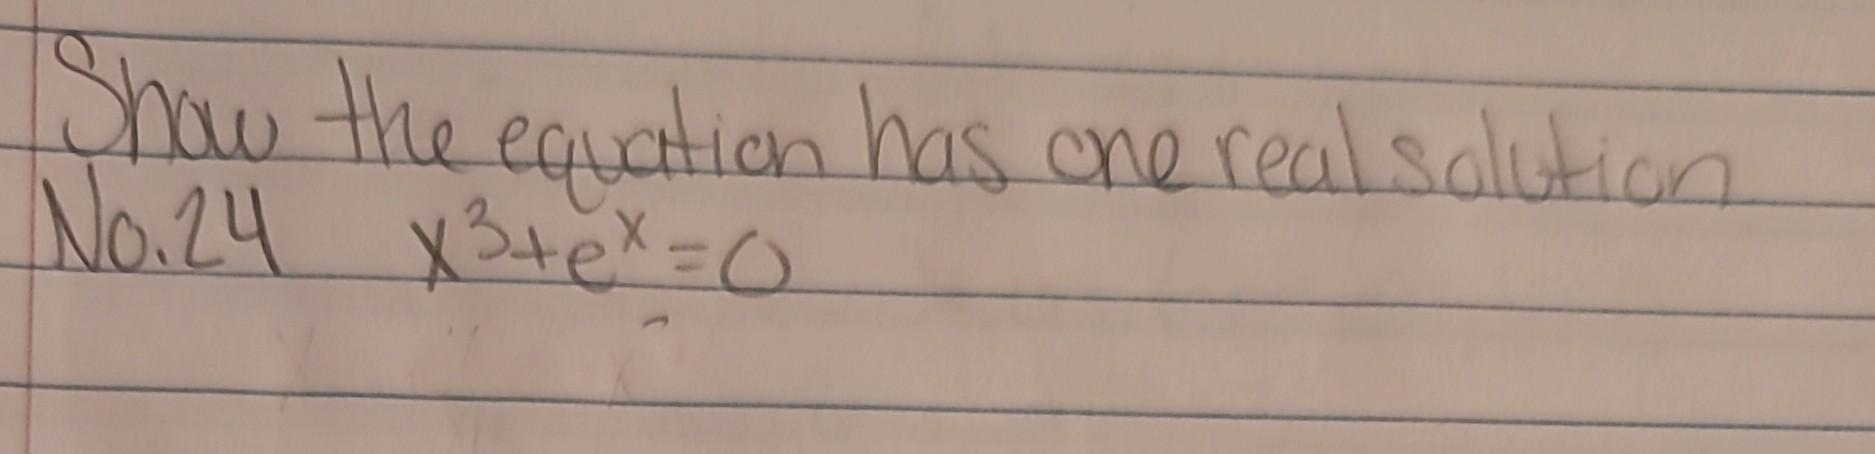 Show the equation has one real solution
No.24 x³+eˣ=0